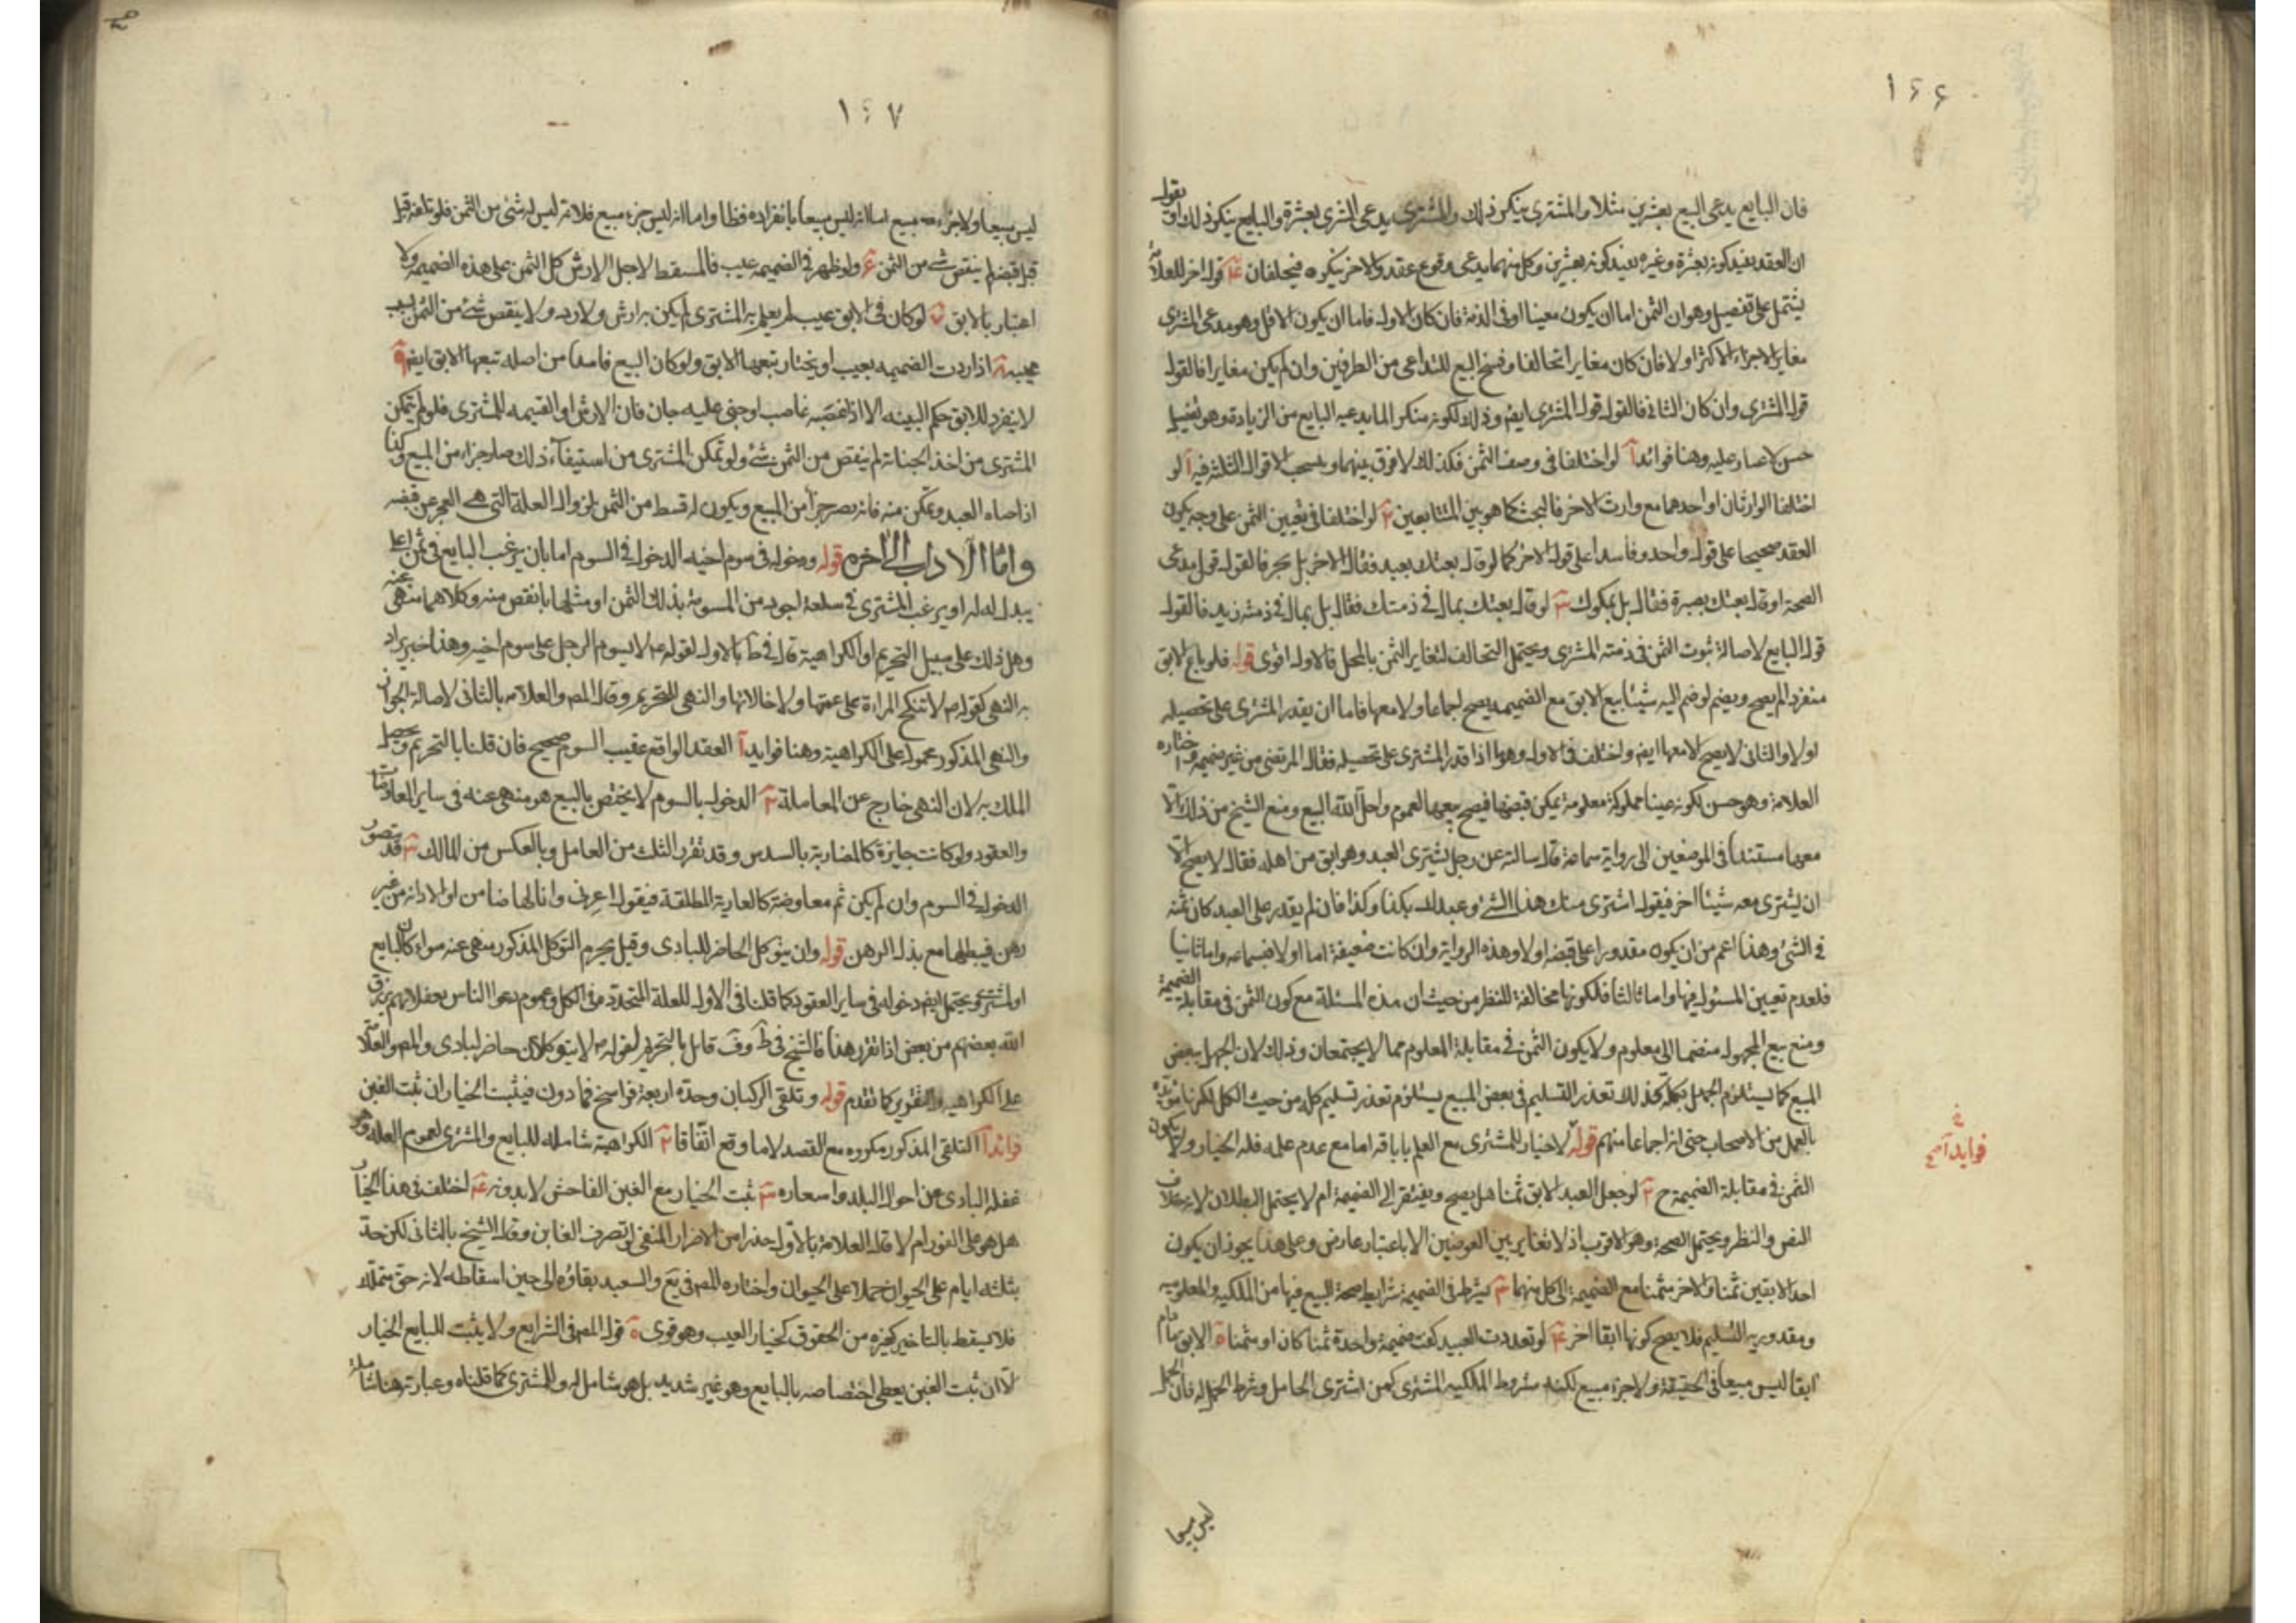 ١٤٦
فان البايع يدعى البيع بعشرين مثلا والمشترى ينكر ذلك والمشترى يدعى الشرى بعشرة والبايع ينكر ذلك او نقول
ان العقد بقيد كونه بعشرة وغيره بقيد كونه بعشرين وكل منهما يدعى وقوع عقد والاخر ينكره فيحلفان ٤ قول اخر للعلامة
يشتمل على تفصيل وهو ان الثمن اما ان يكون معينا او فى الذمة فان كان الاول فاما ان يكون الاقل وهو مدعى المشترى
مغاير الاجزاء الاكثر او لا فان كان مغايرا تحالفا وفسخ البيع للتداعى من الطرفين وان لم يكن مغايرا فالقول
قول المشترى وان كان الثانى فالقول قول المشترى ايضا وذلك لكونه منكرا لما يدعيه البايع من الزيادة وهو تفصيل
حسن لا صار عليه وهنا فوائد آ لو اختلفا فى وصف الثمن فكذلك لا فرق بينهما وينسحب الاقوال الثلثة فيه آ لو
اختلفا الوارثان او احدهما مع وارث الاخر فالبحث كما هو بين المتبايعين ٢ لو اختلفا فى تعيين الثمن على وجه يكون
العقد صحيحا على قول واحد وفاسدا على قول الاخر كما لو قال بعتك بعبد فقال الاخر بل بحر فالقول قول مدعى
الصحة او قال بعتك بصبرة فقال بل بمكوك ٣ لو قال بعتك بمال فى ذمتك فقال بل بمال فى ذمة زيد فالقول
قول البايع لاصالة ثبوت الثمن فى ذمته المشترى ويحتمل التحالف لتغاير الثمن بالمحل فالاول اقوى قوله فلو باع الابق
منفردا لم يصح ويصح لو ضم اليه شيئا بيع الابق مع الضميمه يصح اجماعا ولا معها فاما ان يقدر المشترى على تحصيله
او لا والثانى لا يصح الا معها ايضا واختلف فى الاول وهو ما اذا قدر المشترى على تحصيله فقال المرتضى من غير ضميمه واختاره
العلامة وهو حسن لكونه عينا مملوكة معلومة يمكن قبضها فيصح بيعها لعموم واحل الله البيع ومنع الشيخ من ذلك الا
معها مستندا فى الموضعين الى رواية سماعة قال سالته عن رجل يشترى العبد وهو ابق من اهله فقال لا يصح الا
ان يشترى معه شيئا اخر فيقول اشترى منك هذا الشئ وعبدك بكذا وكذا فان لم يقدر على العبد كان ثمنه
فى الشئ وهذا اعم من ان يكون مقدورا على قبضه او لا وهذه الرواية وان كانت ضعيفة اما اولا فبسماعه واما ثانيا
فلعدم تعيين المسئول فيها واما ثالثا فلكونها مخالفة للنظر من حيث ان هذه المسئلة مع كون الثمن فى مقابلة الضميمة
ومنع بيع المجهول منضما الى معلوم ولا يكون الثمن فى مقابلة المعلوم مما لا يجتمعان وذلك لان الجهل ببعض
المبيع كما يستلزم الجهل بكله كذلك تعذر التسليم فى بعض المبيع يستلزم تعذر تسليم كله من حيث الكل لكنها مؤيدة
بالعمل من الاصحاب حتى انه اجماعا منهم قوله لا خيار للمشترى مع العلم باباقه اما مع عدم علمه فله الخيار ولا يكون
الثمن فى مقابلة الضميمة ح ٢ لو جعل العبد الابق ثمنا هل يصح ويفتقر الى الضميمة ام لا يحتمل البطلان لانه خلاف
النص والنظر ويحتمل الصحة وهو الاقرب اذ لا تغاير بين العوضين الا باعتبار عارض وعلى هذا يجوز ان يكون
احد الابقين ثمنا والاخر مثمنا مع الضميمة الى كل منهما ٣ يشترط فى الضميمة شرايط صحة البيع فيها من الملكيه والمعلوميه
ومقدوريه التسليم فلا يصح كونها ابقا اخر ٤ لو تعددت العبيد كفت ضميمة واحدة ثمنا كان او مثمنا ٥ الابق ما دام
ابقا ليس مبيعا فى الحقيقة ولا جزء مبيع لكنه مشروط الملكيه للمشترى كمن اشترى الحامل وشرط الحمل له فان الحمل
ليس مبيعا
فوايد آ
١٤٧
ليس مبيعا ولا جزء مبيع اما انه ليس مبيعا بانفراده فظا واما انه ليس جزء مبيع فلانه ليس له شئ من الثمن فلو تلف قبل
قبل قبضه لم ينقص شئ من الثمن ٦ ولو ظهر فى الضميمه عيب فالمسقط لاجل الارش كل الثمن على هذه الضميمه ولا
اعتبار بالابق ٧ لو كان فى الابق عيب لم يعلم به المشترى لم يكن به ارش ولا رد ولا ينقص شئ من الثمن بسبب
عيبه ٨ اذا ردت الضميمه بعيب او بخيار تبعها الابق ولو كان البيع فاسدا من اصله تبعها الابق ايضا ٩
لا ينفرد للابق حكم البينه الا اذا غصبه غاصب او جنى عليه جان فان الارش او القيمه للمشترى فلو لم يتمكن
المشترى من اخذ الجناية لم ينقص من الثمن شئ ولو تمكن المشترى من استيفاء ذلك صار جزاء من المبيع وكذا
اذا صاد العبد وتمكن منه فانه يصير جزأ من المبيع ويكون له قسط من الثمن لزوال العلة التى هى العجز عن قبضه
واما الآداب الى اخره قوله ودخوله فى سوم اخيه الدخول فى السوم اما بان يرغب البايع فى ثمن اعلى
يبدله له او يرغب المشترى فى سلعة اجود من المسومة بذلك الثمن او مثلها بانقص منه وكلاهما منهى عنه
وهل ذلك على سبيل التحريم او الكراهية قال فى ط بالاول لقوله ع لا يسوم الرجل على سوم اخيه وهذا خبر يراد
به النهى كقوله ص لا تنكح المراءة على عمتها ولا خالاتها والنهى للتحريم وقال المص والعلامه بالثانى لاصالة الجواز
والنهى المذكور محمول على الكراهية وهنا فوايد آ العقد الواقع عقيب السوم صحيح فان قلنا بالتحريم ويحصل
الملك به لان النهى خارج عن المعاملة ٢ الدخول بالسوم لا يختص بالبيع هو منهى عنه فى ساير المعاوضات
والعقود ولو كانت جايزة كالمضاربة بالسدس وقد تقرر الثلث من العامل وبالعكس من المالك ٣ قد يتصور
الدخول فى السوم وان لم يكن ثم معاوضة كالعارية المطلقة فيقول اعرنى وانا لها ضامن او لا دانه من غير
رهن فيبطلها مع بذل الرهن قوله وان يتوكل الحاضر للبادى وقيل يحرم التوكل المذكور منهى عنه سواء كان لبايع
او لمشتر ويحتمل ايضا دخوله فى ساير العقود كما قلنا فى الاول للعلة المتحدة فى الكل وعموم دعوا الناس بغفلاتهم يرزق
الله بعضهم من بعض اذا تقرر هذا فالشيخ فى ط وف قايل بالتحريم لقوله ص لا يتوكلان حاضر لبادى والمص والعلامة
على الكراهيه والتقرير كما تقدم قوله وتلقى الركبان وحده اربعة فراسخ فما دون فيثبت الخيار ان ثبت الغبن
فوائد آ التلقى المذكور مكروه مع القصد لا ما وقع اتفاقا ٢ الكراهية شاملة للبايع والمشترى لعموم العله وهو
غفلة البادى عن احوال البلد واسعاره ٣ ثبت الخيار مع الغبن الفاحش لا بدونه ٤ اختلف فى هذا الخيار
هل هو على الفور ام لا قال العلامة بالاول حذرا من الاضرار المنفى لو تصرف الغابن وقال الشيخ بالثانى لكن حد
بثلثه ايام على الحيوان حملا على الحيوان واختاره المص فى يع والسعيد بقاؤه الى حين اسقاطه لانه حق متملك
فلا يسقط بالتاخير كغيره من الحقوق كخيار العيب وهو قوى ٥ قول المص فى الشرايع ولا يثبت للبايع الخيار
الا ان ثبت الغبن يعطى اختصاصه بالبايع وهو غير شديد بل هو شامل له وللمشترى كما قلناه وعبارته هنا شاملة